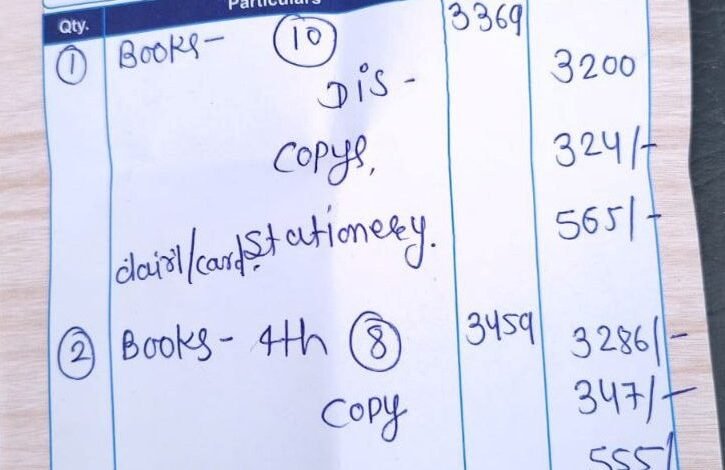 Qty. Particulars
① Books- ⑩ 3369
Dis- 3200
Copys, 324/-
dairi/card Stationery. 565/-
② Books- 4th ⑧ 3459 3286/-
Copy 347/-
555/